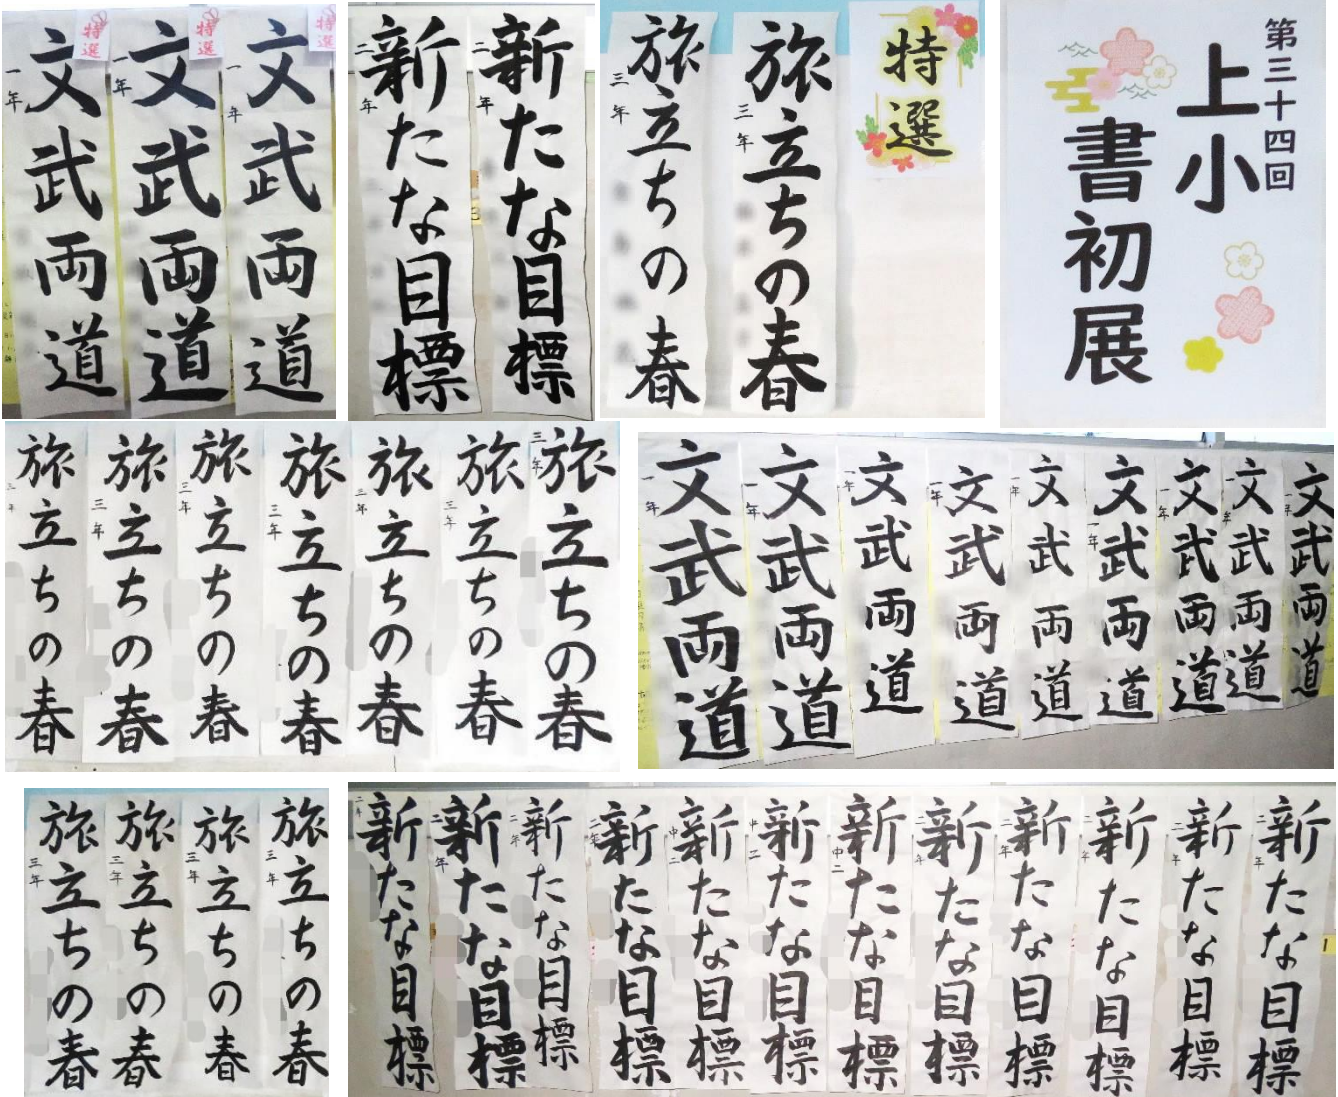 特選
文武両道
一年
特選
文武両道
一年
特選
文武両道
一年
新たな目標
二年
新たな目標
二年
特選
旅立ちの春
三年
旅立ちの春
三年
第三十四回
上小
書初展
旅立ちの春
三年
旅立ちの春
三年
旅立ちの春
三年
旅立ちの春
三年
旅立ちの春
三年
旅立ちの春
三年
旅立ちの春
三年
文武両道
一年
文武両道
一年
文武両道
一年
文武両道
一年
文武両道
一年
文武両道
一年
文武両道
一年
文武両道
一年
文武両道
一年
旅立ちの春
三年
旅立ちの春
三年
旅立ちの春
三年
旅立ちの春
三年
新たな目標
二年
新たな目標
二年
新たな目標
二年
新たな目標
二年
新たな目標
二年
新たな目標
中二
新たな目標
中二
新たな目標
中二
新たな目標
二年
新たな目標
二年
新たな目標
二年
新たな目標
二年